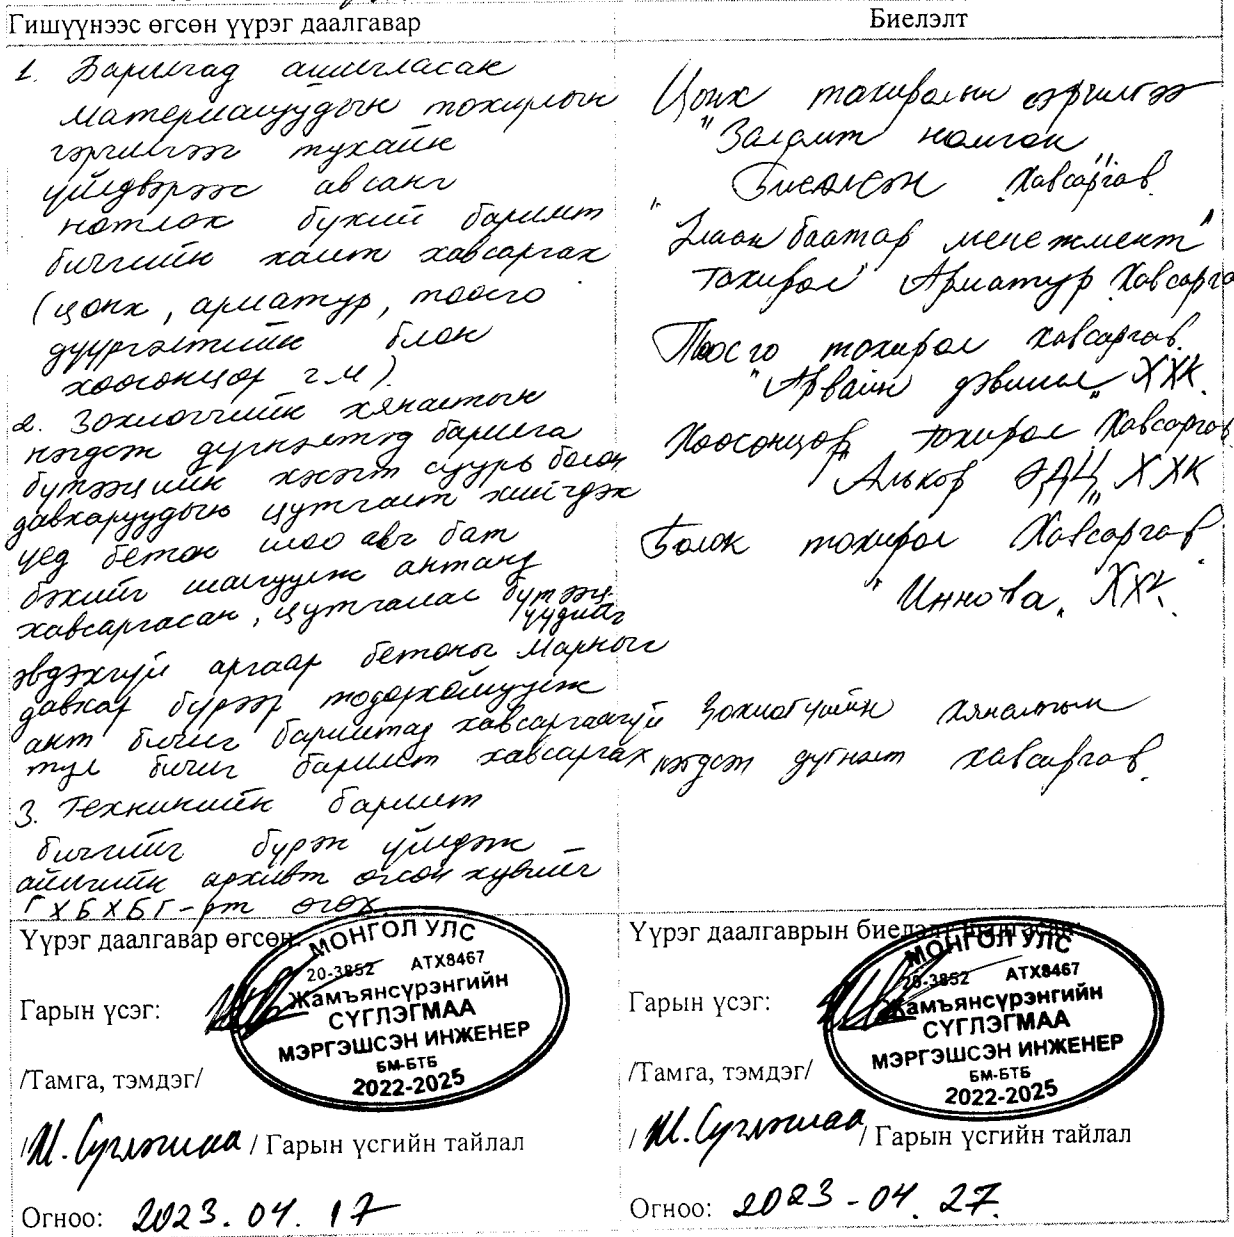 Гишүүнээс өгсөн үүрэг даалгавар
1. Барилгад ашигласан
материалуудын тохирлын
гэрчилгээг тухайн
үйлдвэрээс авсанг
нотлох бүхий баримт
бичгийн хамт хавсаргах
(цонх, арматур, тоосго
дүүргэлтийн блок
хоосонцор г.м).
2. Зохиогчийн хяналтын
нэгдсэн дүгнэлтэд барилга
бүтээцийн хэсэгт суурь болон
давхаруудын цутгалт хийгдэх
үед бетон шоо авч бат
бэхийг шалгуулж актанд
хавсаргасан, цутгамал бүтээц
үүдийг
эвдэхгүй аргаар бетоны маркыг
давхар бүрээр тодорхойлуулж
акт бичиг баримтад хавсаргаагүй
тул бичиг баримт хавсаргах
3. Техникийн баримт
бичгийг бүрэн үйлдэж
аймгийн архивт өгсөн хувийг
ГХБХБГ-рт өгөх.
Биелэлт
Цонх тохиролын гэрчилгээ
"Заламт номгон"
Биелсэн Хавсаргав.
"Улаан баатар менежмент"
тохирол Арматур Хавсарга
Тоосго тохирол хавсаргав.
"Арвайн дэвшил" ХХК.
Хоосонцор тохирол Хавсаргав.
"Алькор ЭДЦ" ХХК
Блок тохирол Хавсаргав.
"Иннова" ХХК.
Зохиогчийн хяналтын
нэгдсэн дүгнэлт хавсаргав.
Үүрэг даалгавар өгсөн:
МОНГОЛ УЛС
20-3852 АТХ8467
Жамъянсүрэнгийн
СҮГЛЭГМАА
МЭРГЭШСЭН ИНЖЕНЕР
БМ-БТБ
2022-2025
Гарын үсэг:
/Тамга, тэмдэг/
/Ж. Сүглэгмаа / Гарын үсгийн тайлал
Огноо: 2023. 04. 17
Үүрэг даалгаврын биелэлт шалгасан:
МОНГОЛ УЛС
20-3852 АТХ8467
Жамъянсүрэнгийн
СҮГЛЭГМАА
МЭРГЭШСЭН ИНЖЕНЕР
БМ-БТБ
2022-2025
Гарын үсэг:
/Тамга, тэмдэг/
/ Ж. Сүглэгмаа / Гарын үсгийн тайлал
Огноо: 2023-04. 27.